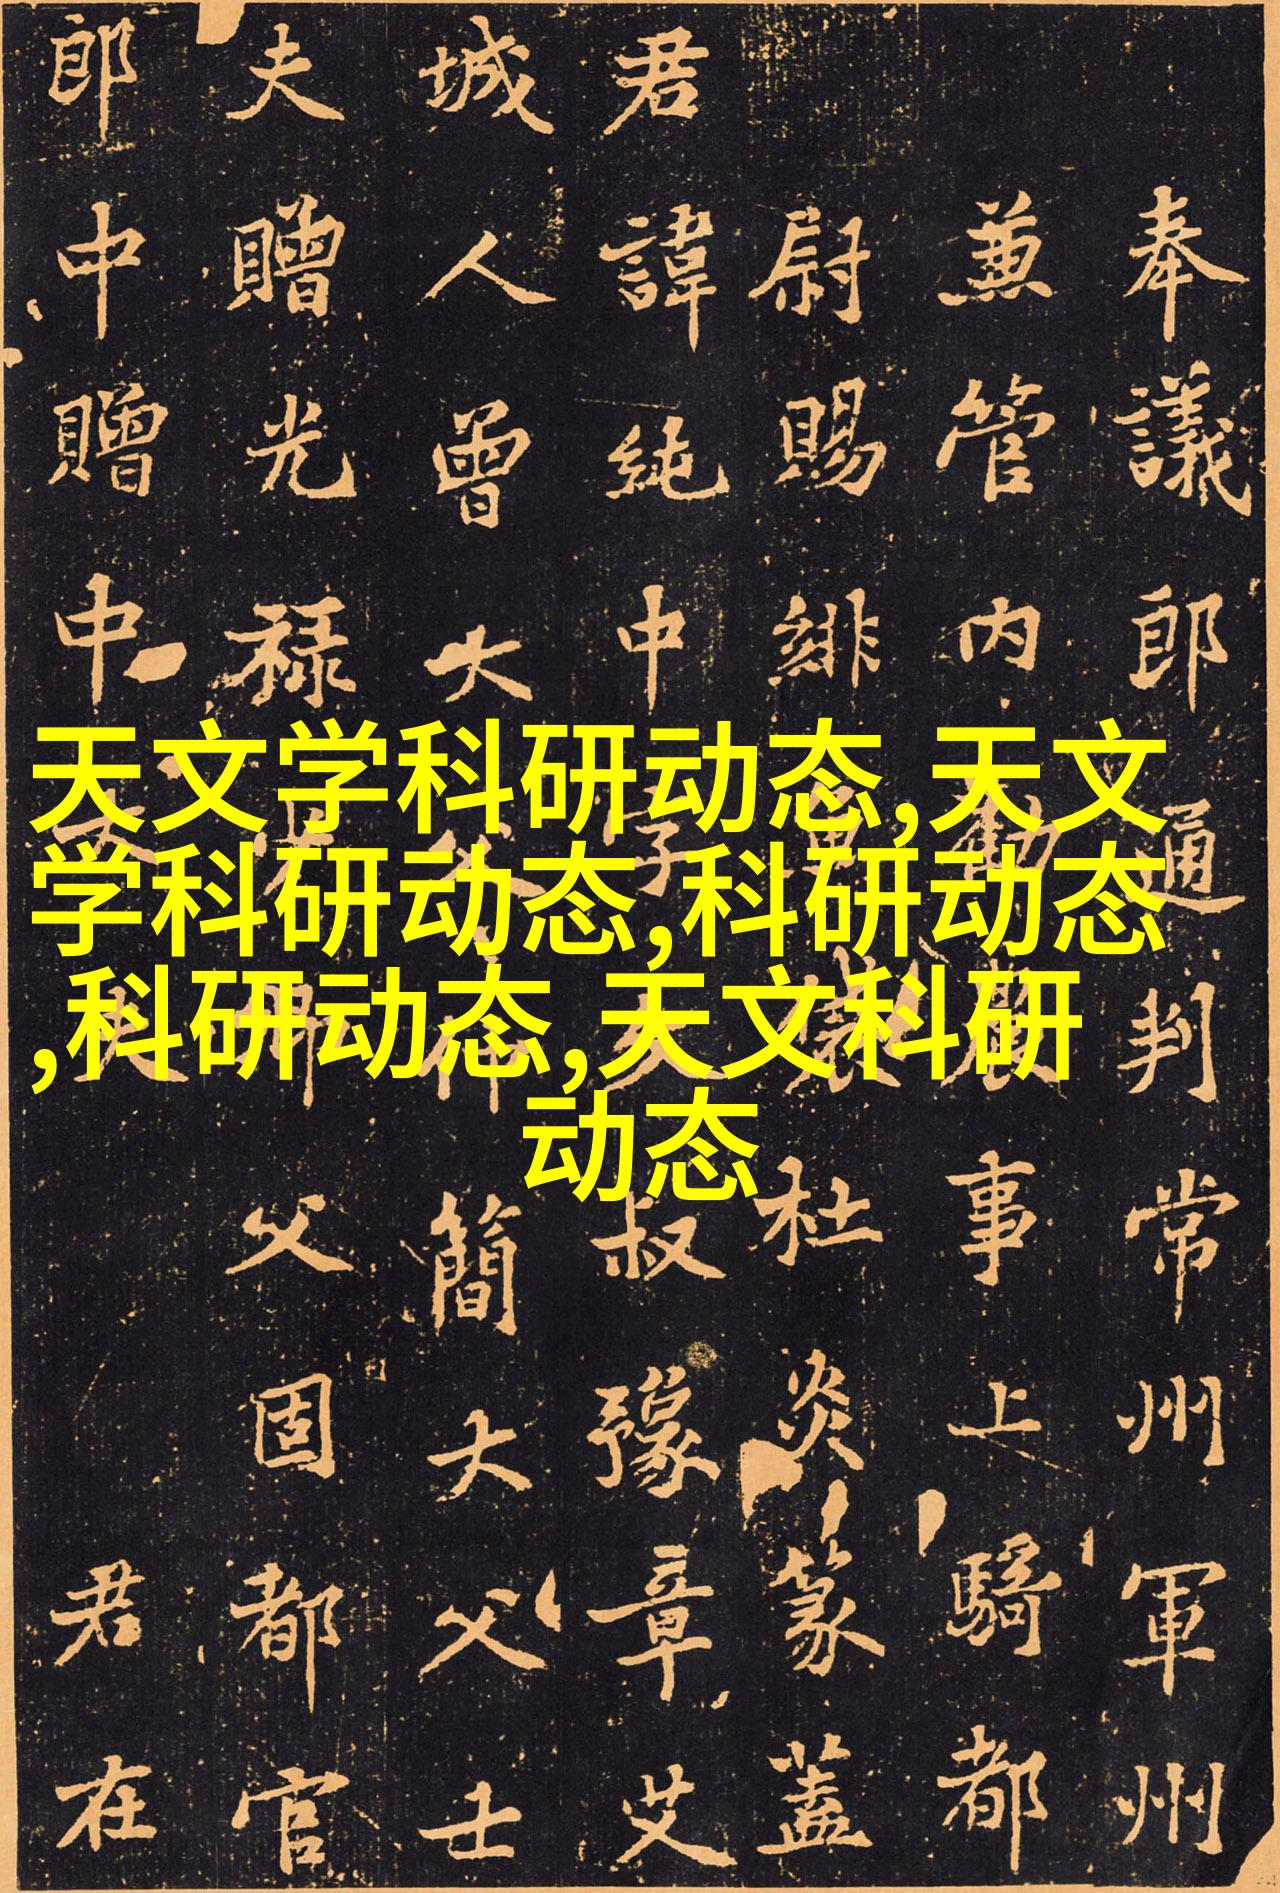 天文学科研动态,天文
学科研动态,科研动态
,科研动态,天文科研
动态
奉議郎通判常州軍州
兼管内事上騎都
尉賜緋杜炎篆蓋
君諱純中字叔豫章艾
城人曾大父簡大父士
夫贈光禄父固都官
郎中贈中君在